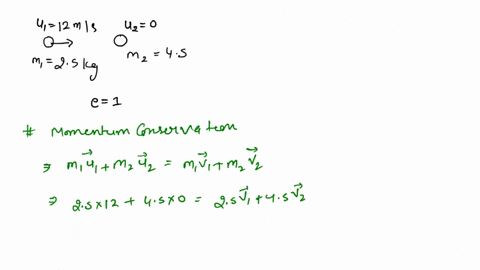 u₁=12 m/s u₂=0
m₁=2.5kg m₂=4.5
e=1
# Momentum Conservation
⇒ m₁u⃗₁+m₂u⃗₂ = m₁v⃗₁+m₂v⃗₂
⇒ 2.5×12 + 4.5×0 = 2.5v⃗₁+4.5v⃗₂